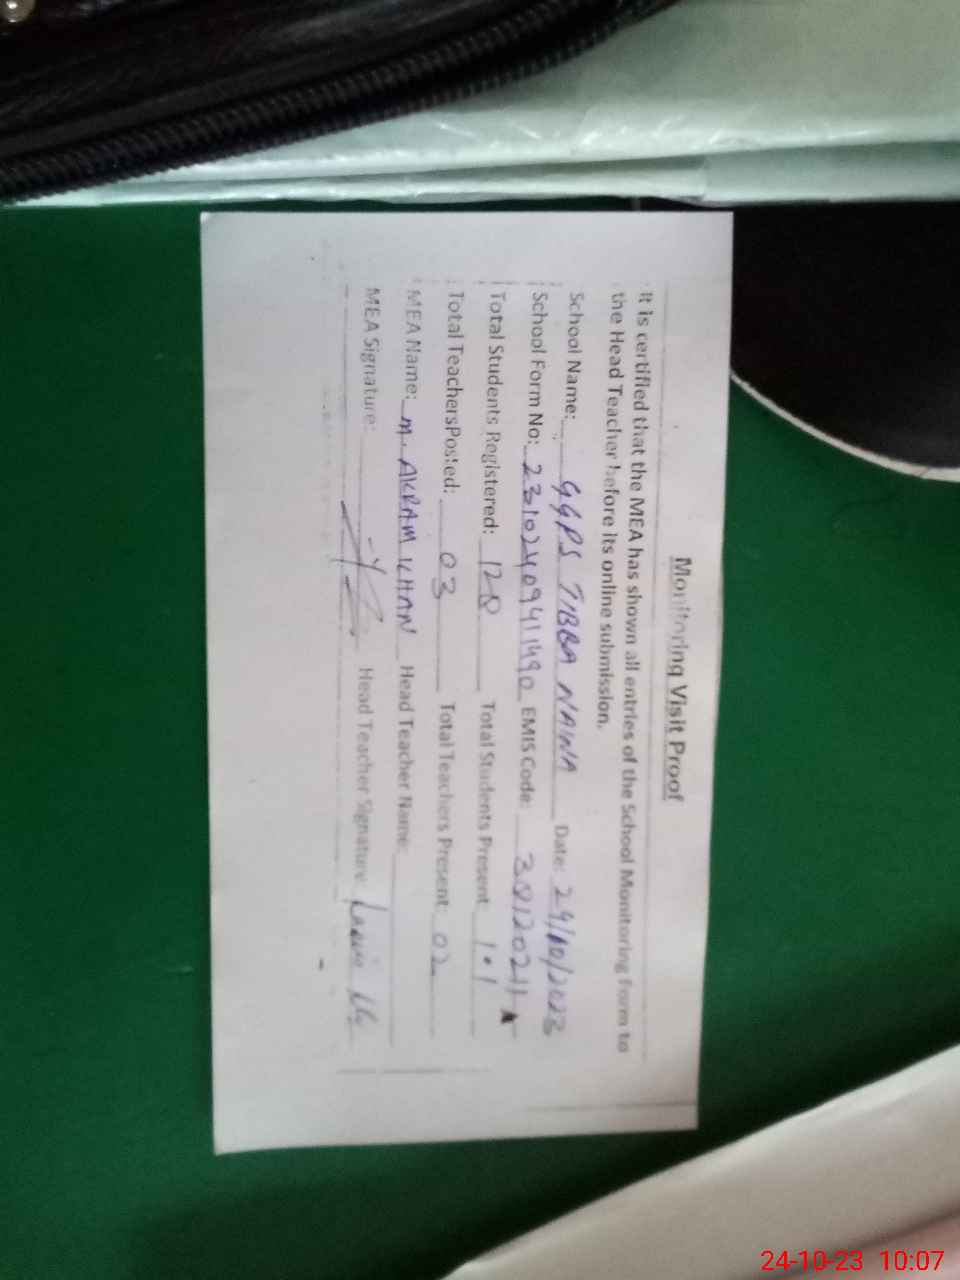 Monitoring Visit Proof
It is certified that the MEA has shown all entries of the School Monitoring Form to
the Head Teacher before its online submission.
School Name: GGPS TIBBA NAINA Date: 24/10/2023
School Form No: 23102409411490 EMIS Code:
Total Students Registered: 128 Total Students Present: 101
Total TeachersPosted: 03 Total Teachers Present: 02
MEA Name: M. AKRAM KHAN Head Teacher Name:
MEA Signature: Head Teacher Signature:
24-10-23 10:07